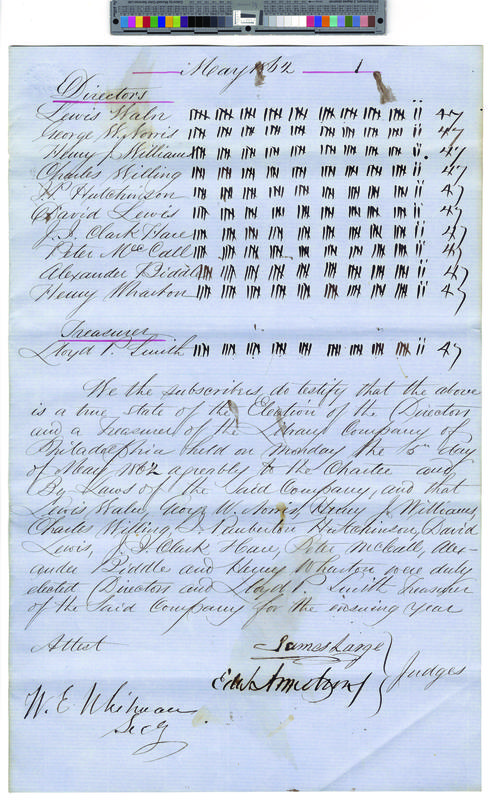 May 1862
Directors
Lewis Waln 47
George W. Norris 47
Henry J. Williams 47
Charles Willing 47
P. Hutchinson 47
David Lewis 47
J. I. Clark Hare 47
Peter McCall 47
Alexander Biddle 47
Henry Wharton 47
Treasurer
Lloyd P. Smith 47
We the subscribers do testify that the above
is a true state of the Election of the Directors
and a Treasurer of the Library Company of
Philadelphia held on Monday the day
of May 1862 agreeably to the Charter and
By Laws of the Said Company, and that
Lewis Waln, George W. Norris, Henry J. Williams
Charles Willing, Pemberton Hutchinson, David
Lewis, J. I. Clark Hare, Peter McCall, Alex-
ander Biddle and Henry Wharton were duly
elected Directors and Lloyd P. Smith Treasurer
of the Said Company for the ensuing year
Attest
James Large
Armstrong
Judges
W. E. Whitman
Secy